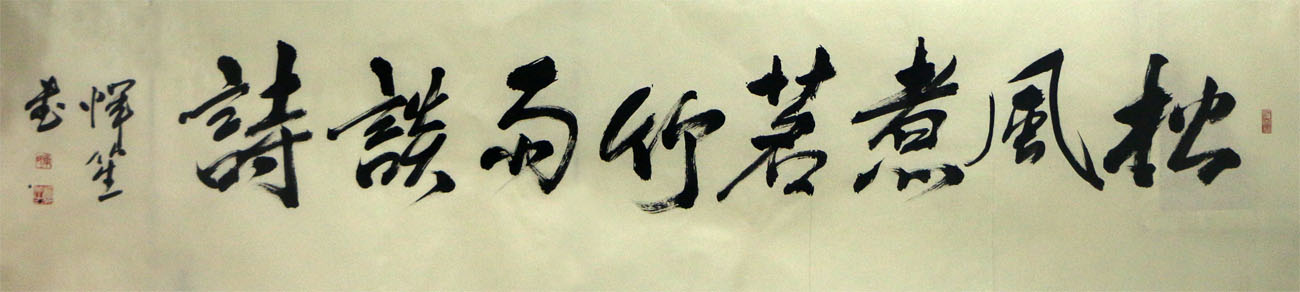 松風煮茗竹雨談詩
惲笙
書